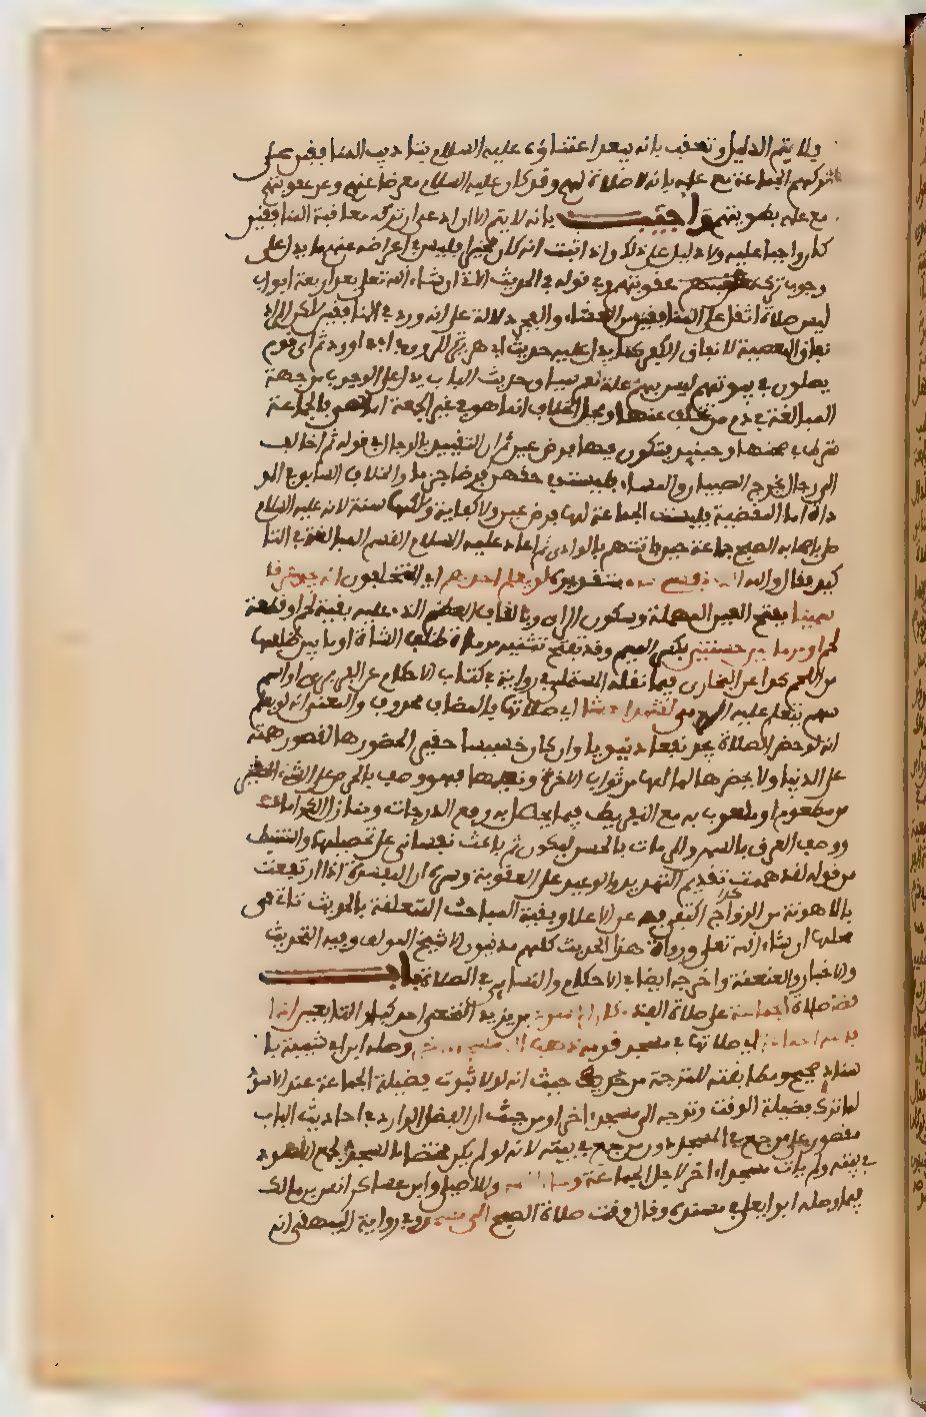 فلا يتم الدليل وتعقب بانه يبعد اعتناؤه عليه السلام بتاديب المنافقين على
تركهم الجماعة مع علمه بانه لا صلاة لهم وقد كان عليه السلام معرضا عنهم وعن عقوبتهم
مع علمه بطويتهم واجيب بانه لا يتم الا ان ادعى ان ترك معاقبة المنافقين
كان واجبا عليه ولا دليل على ذلك واذا ثبت انه كان مخيرا فليس في اعراضه عنهم ما يدل على
وجوب ترك عقوبتهم وفي قوله في الحديث الاتي ان شاء الله تعلى بعد اربعة ابواب
ليس صلاة اثقل على المنافقين من العشاء والفجر دلالة على انه ورد في المنافقين لكن المراد
نفاق المعصية لا نفاق الكفر كما يدل عليه حديث ابي هريرة المروي في ابي داوود ثم اتي قوم
يصلون في بيوتهم ليس بهم علة نعم سياق حديث الباب يدل على الوجوب من جهة
المبالغة في ذم من تخلف عنها ومحل الخلاف انما هو في غير الجمعة اما هي فالجماعة
شرط في صحتها وحينئذ فتكون فيها فرض عين ثم ان التقييد بالرجال في قوله ثم اخالف
الى رجال يخرج الصبيان والنساء فليست في حقهن فرضا جزما والخلاف السابق في المو
داة اما المقضية فليست الجماعة لها فرض عين ولا كفاية ولكنها سنة لانه عليه السلام
صلى باصحابه الصبح جماعة حين فاتتهم بالوادي ثم اعاد عليه السلام القسم للمبالغة في التا
كيد فقال والله الذي نفسي بيده لو يعلم احدهم اي المتخلفون انه يجد عرقا
سمينا بفتح العين المهملة وسكون الراء وبالقاف العظم الذي عليه بقية لحم او قطعة
لحم او مرماتين حسنتين بكسر الميم وقد تفتح تثنية مرماة ظلف الشاة او ما بين ظلفيها
من اللحم كذا عن البخاري فيما نقله المستملي في روايته في كتاب الاحكام عن الفربري او اسم
سهم يتعلم عليه الرمي لشهد العشاء اي صلاتها فالمضاف محذوف والمعنى انه لو علم
انه لو حضر الصلاة يجد نفعا دنيويا وان كان خسيسا حقيرا لحضورها لقصور همته
على الدنيا ولا يحضرها لما لها من ثواب الاخرى ونعيمها فهو وصف بالحرص على الشيء الحقير
من مطعوم او ملعوب به مع التفريط فيما يحصل به رفع الدرجات ومنازل الكرامات
ووصف العرق بالسمن والمرماة بالحسن ليكون ثم باعث نفساني على تحصيلها واستنبط
من قوله لقد هممت تقديم التهديد والوعيد على العقوبة وسره ان المفسدة اذا ارتفعت
بالاهون من الزواجر اكتفي به عن الاعلا وبقية المباحث المتعلقة بالحديث تاتي في
محلها ان شاء الله تعلى ورواة هذا الحديث كلهم مدنيون الا شيخ المولف وفيه التحديث
والاخبار والعنعنة واخرجه ايضا في الاحكام والنساءي في الصلاة باب
فضل صلاة الجماعة على صلاة الفذ وكان الاسود بن يزيد النخعي احد كبار التابعين اذا
فاتته الجماعة اي صلاتها في مسجد قومه ذهب الى مسجد اخر وصله ابن ابي شيبة با
سناد صحيح ومطابقته للترجمة من حيث انه لولا ثبوت فضيلة الجماعة عند الاسود
لما ترك فضيلة الوقت وتوجه الى مسجد اخر او من حيث ان الفضل الوارد في احاديث الباب
مقصور على من جمع في المسجد دون من جمع في بيته لانه لو لم يكن مختصا بالمسجد لجمع الاسود
في بيته ولم يات مسجدا اخر لاجل الجماعة وللاصيلي وابن عساكر انس بن مالك
فيما وصله ابو يعلى في مسنده وقال وقت صلاة الصبح الى مسجد وفي رواية البيهقي انه